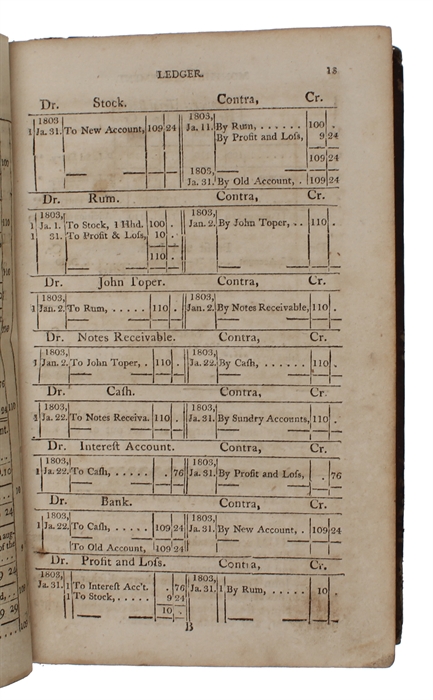 LEDGER. 18
Dr. Stock. Contra, Cr.
1803 1803,
1 Ja. 31. To New Account, 109 24 Ja. 11. By Rum, . . . . . . 100 .
By Profit and Loſs, 9 24
109 24
1803,
Ja. 31. By Old Account, . 109 24
Dr. Rum. Contra, Cr.
1803, 1803,
1 Ja. 1. To Stock, 1 Hhd. 100 . Jan. 2. By John Toper, . . 110 .
1 31. To Profit & Loſs, 10 .
110 .
Dr. John Toper. Contra, Cr.
1803, 1803,
1 Jan. 2. To Rum, . . . . . 110 . Jan. 2. By Notes Receivable, 110 .
Dr. Notes Receivable. Contra, Cr.
1803, 1803,
1 Jan. 2. To John Toper, . . 110 . Ja. 22. By Caſh, . . . . . . 110 .
Dr. Caſh. Contra, Cr.
1803, 1803,
1 Ja. 22. To Notes Receiva. 110 . Ja. 31. By Sundry Accounts, 110 .
Dr. Intereſt Account. Contra, Cr.
1803, 1803,
1 Ja. 22. To Caſh, . . . . . . 76 Ja. 31. By Profit and Loſs, . 76
Dr. Bank. Contra, Cr.
1803, 1803,
1 Ja. 22. To Caſh, . . . . . 109 24 Ja. 31. By New Account, . 109 24
To Old Account, 109 24
Dr. Profit and Loſs. Contra, Cr.
1803, 1803,
Ja. 31. 1 To Intereſt Acc't. . 76 Ja. 31. 1 By Rum, . . . . . 10 .
1 To Stock, . . . . . 9 24
10 .
B